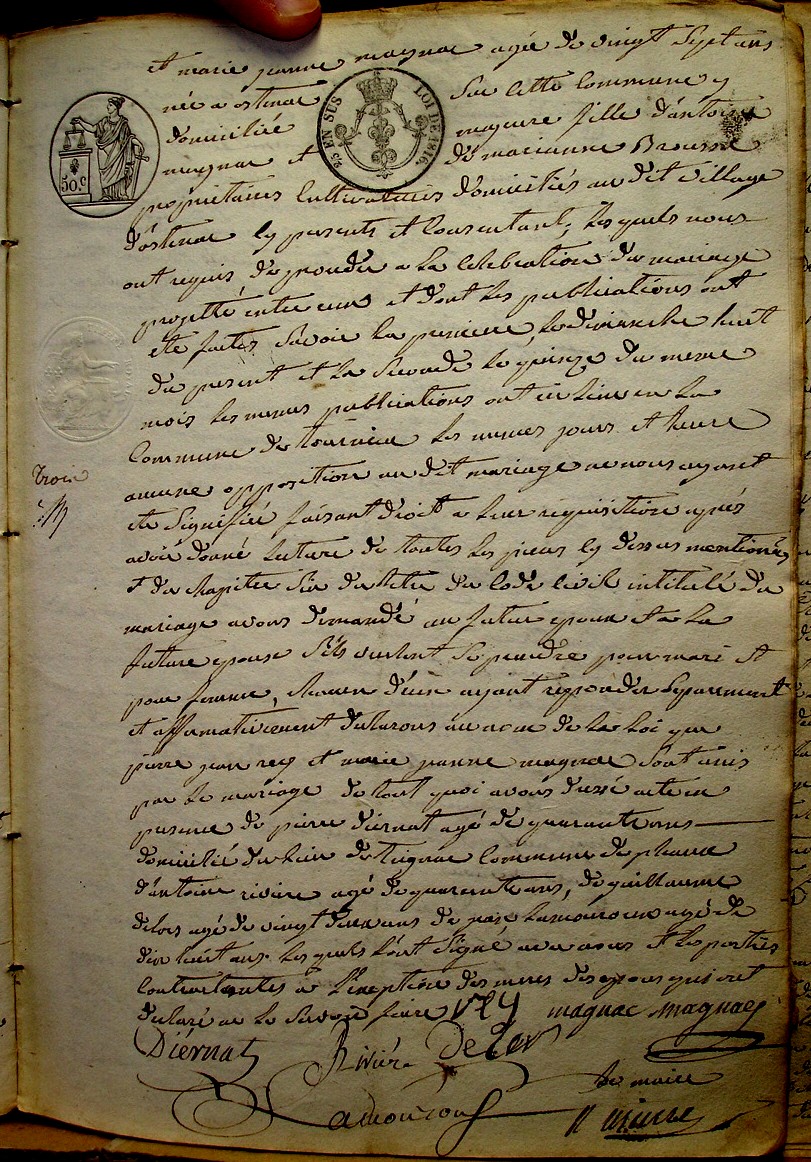 et marie jeanne magnac agée de vingt sept ans
née a ostenac sur cette commune y
domiciliée majeure fille d'antoine
magnac et de marianne Brousse
propriétaires Cultivateurs domiciliés au dit village
d'ostenac cy presents et Consentant, les quels nous
ont requis de proceder a la Celebration du mariage
projetté entre eux et dont les publications ont
eté faites savoir la premiere, le dimanche huit
du present et la seconde le quinze du meme
mois les memes publications ont eu lieu en la
Commune de les memes jours et heure
aucune opposition au dit mariage ne nous ayant
eté signifié faisant droit a leur requisition après
avoir donné lecture de toutes les pieces cy dessus mentionées
et du chapitre six du titre du Code Civil intitulé du
mariage avons demandé au futur epoux et a la
future epouse s'ils veulent se prendre pour mari et
pour femme, chacun d'eux ayant repondu separement
et affirmativement declarons au nom de la Loi que
pierre jean rey et marie jeanne magnac sont unis
par le mariage de tout quoi avons dressé acte en
presence de pierre diernat agé de quarante ans
domicilié du lieu de Commune de
d'antoine riviere agé de quarente ans, de guillaume
delors agé de vingt deux ans de Lamouroux agé de
dix huit ans les quels ont signé avec nous et les parties
Contractantes a l'exeption des meres des epoux qui ont
declaré ne le savoir faire rey magnac magnac
Diérnat Rivière Delor
Lamouroux le maire
50 c
25 EN SUS LOI DE 1816.
trois